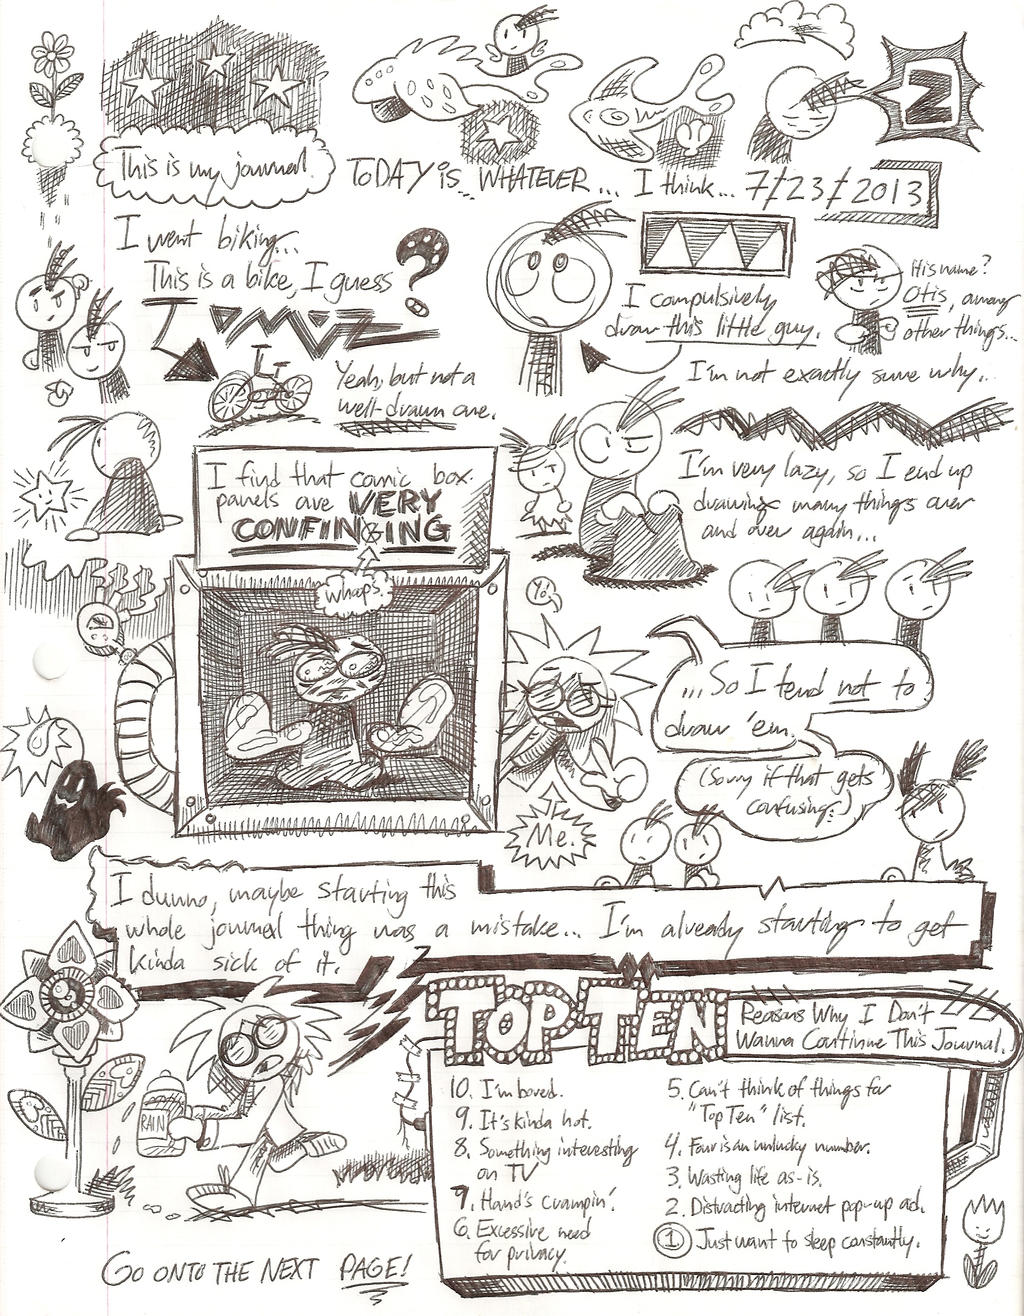 This is my journal.
TODAY is... WHATEVER... I think... 7/23/2013
2
I went biking...
This is a bike, I guess
?
Yeah, but not a
well-drawn one.
I compulsively
draw this little guy.
His name?
Otis, among
other things...
I'm not exactly sure why...
I find that comic box
panels are VERY
CONFINGING
whoops.
I'm very lazy, so I end up
drawing many things over
and over again...
Yo.
...So I tend not to
draw 'em.
(Sorry if that gets
confusing.)
Me.
I dunno, maybe starting this
whole journal thing was a mistake... I'm already starting to get
kinda sick of it.
TOP TEN
Reasons Why I Don't
Wanna Continue This Journal.
10. I'm bored.
9. It's kinda hot.
8. Something interesting
on TV
7. Hand's Crampin'.
6. Excessive need
for privacy.
5. Can't think of things for
"Top Ten" list.
4. Four is an unlucky number.
3. Wasting life as-is.
2. Distracting internet pop-up ad.
1. Just want to sleep constantly.
RAIN
GO ONTO THE NEXT PAGE!